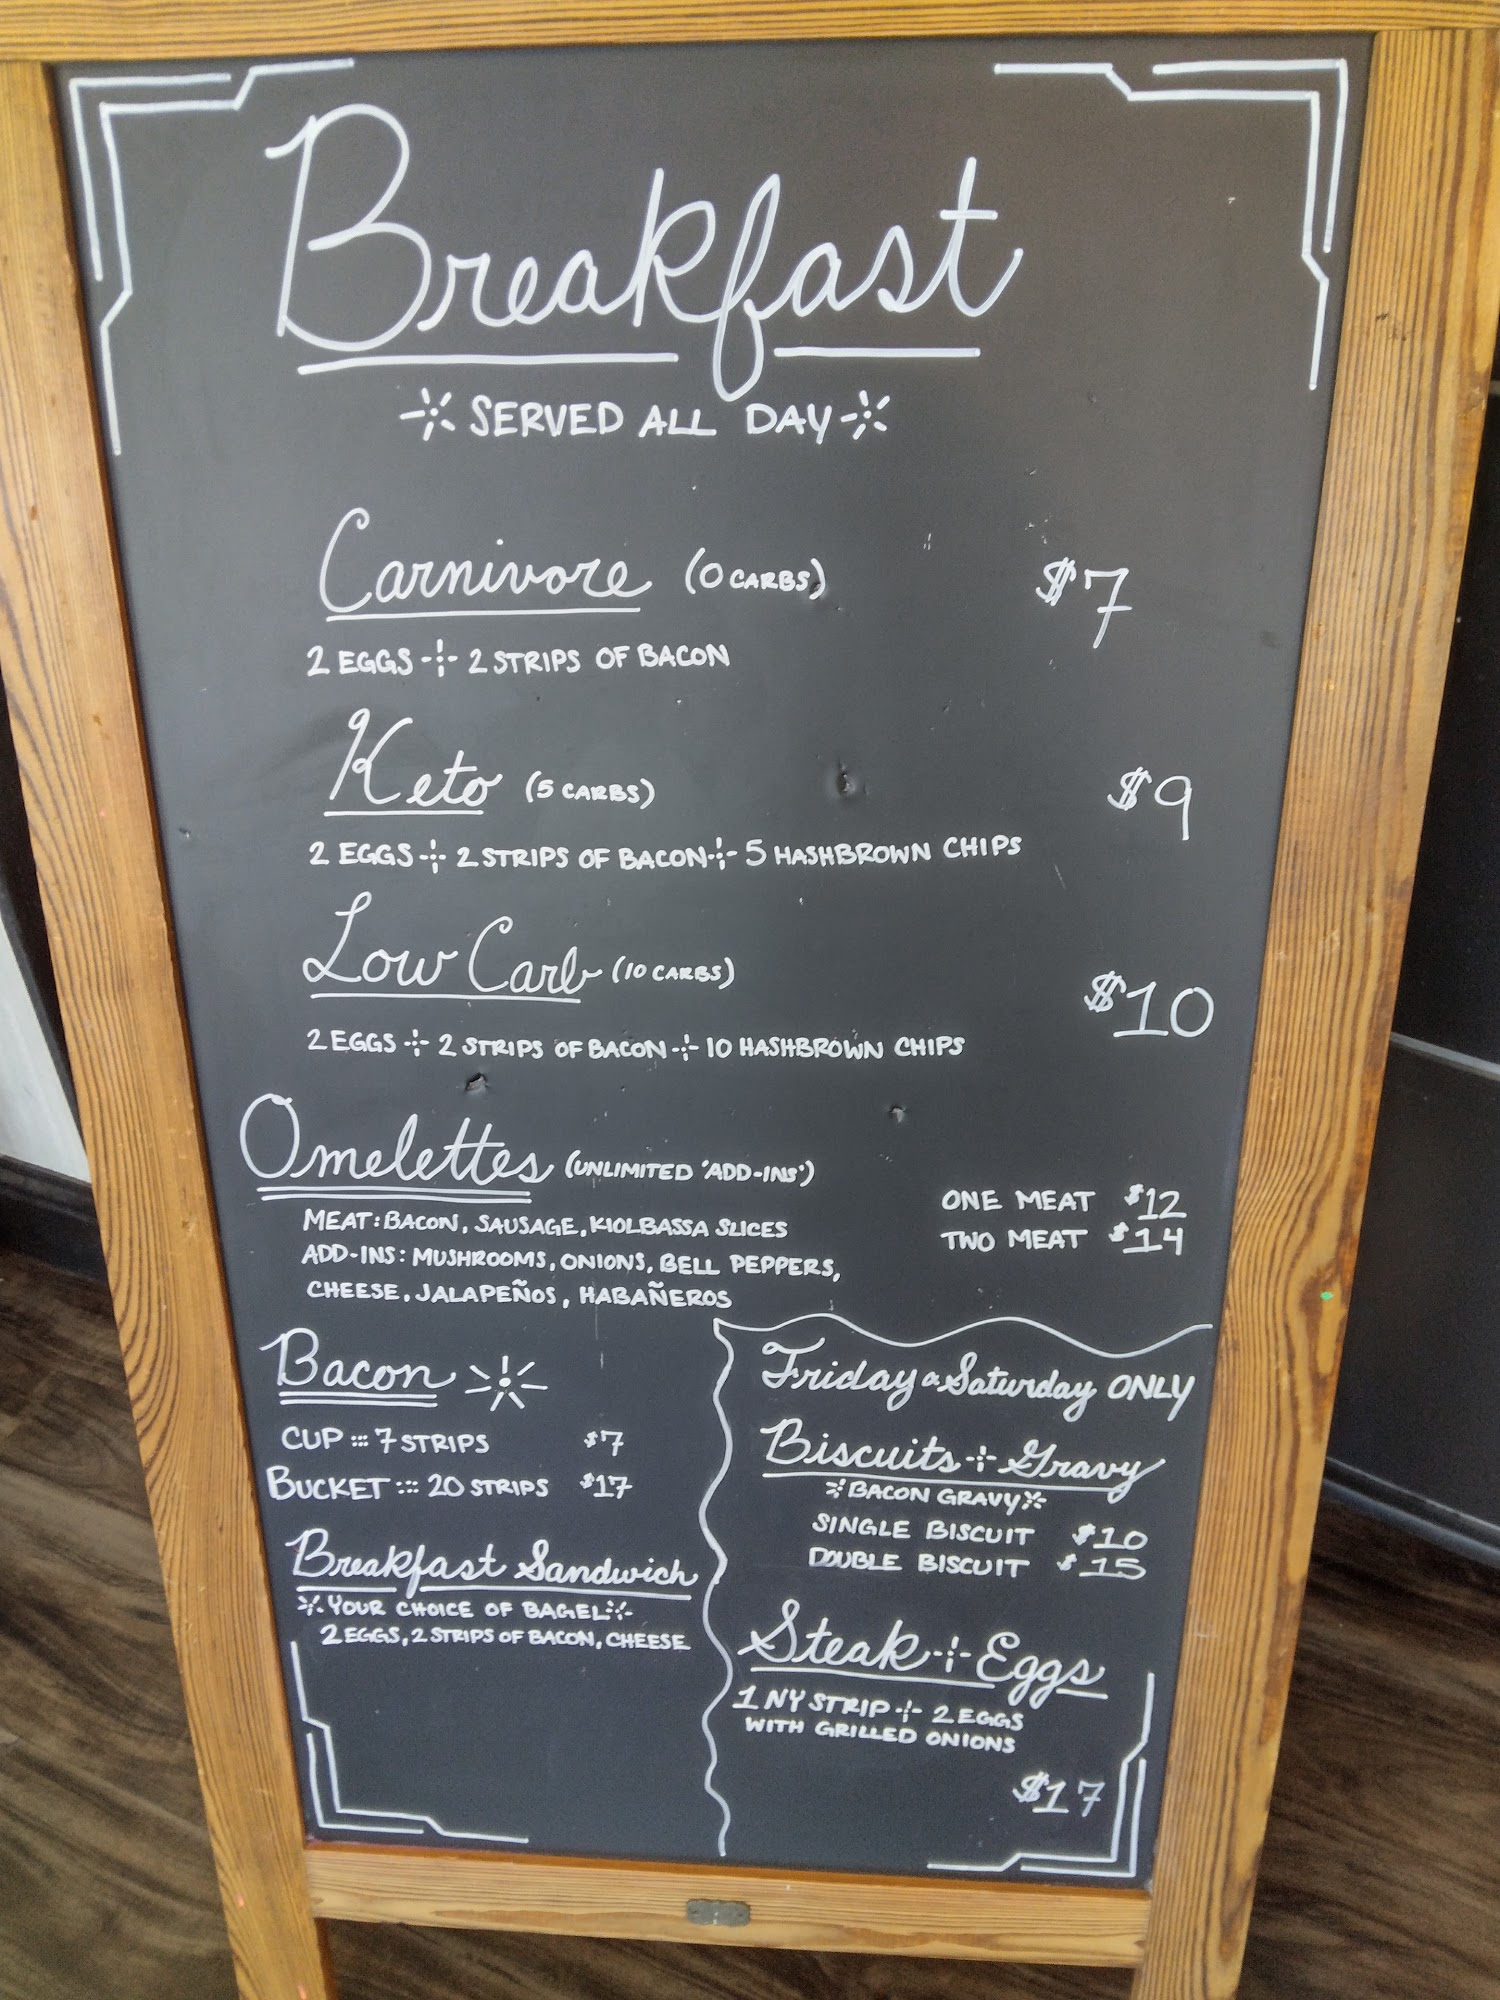 Breakfast
SERVED ALL DAY
Carnivore (0 CARBS) $7
2 EGGS + 2 STRIPS OF BACON
Keto (5 CARBS) $9
2 EGGS + 2 STRIPS OF BACON + 5 HASHBROWN CHIPS
Low Carb (10 CARBS) $10
2 EGGS + 2 STRIPS OF BACON + 10 HASHBROWN CHIPS
Omelettes (UNLIMITED 'ADD-INS')
ONE MEAT $12
TWO MEAT $14
MEAT: BACON, SAUSAGE, KIOLBASSA SLICES
ADD-INS: MUSHROOMS, ONIONS, BELL PEPPERS,
CHEESE, JALAPEÑOS, HABAÑEROS
Bacon
CUP ::: 7 STRIPS $7
BUCKET ::: 20 STRIPS $17
Breakfast Sandwich
YOUR CHOICE OF BAGEL
2 EGGS, 2 STRIPS OF BACON, CHEESE
Friday & Saturday ONLY
Biscuits + Gravy
BACON GRAVY
SINGLE BISCUIT $10
DOUBLE BISCUIT $15
Steak + Eggs
1 NY STRIP + 2 EGGS
WITH GRILLED ONIONS
$17